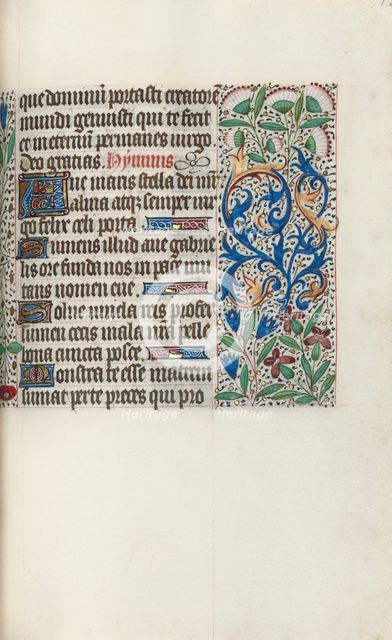 que dominum portasti creatore
mundi genuisti qui te fecit
et in eternum permanes virgo
Deo gratias Hymnus
Aue maris stella dei mater
alma atqz semper uirgo
felix celi porta
Sumens illud aue gabrie
lis ore funda nos in pace mu
tans nomen eue
Solue uincla reis profer
lumen cecis mala nra pelle
bona cuncta posce
Monstra te esse matrem
sumat per te preces qui pro
Heritage
Heritage